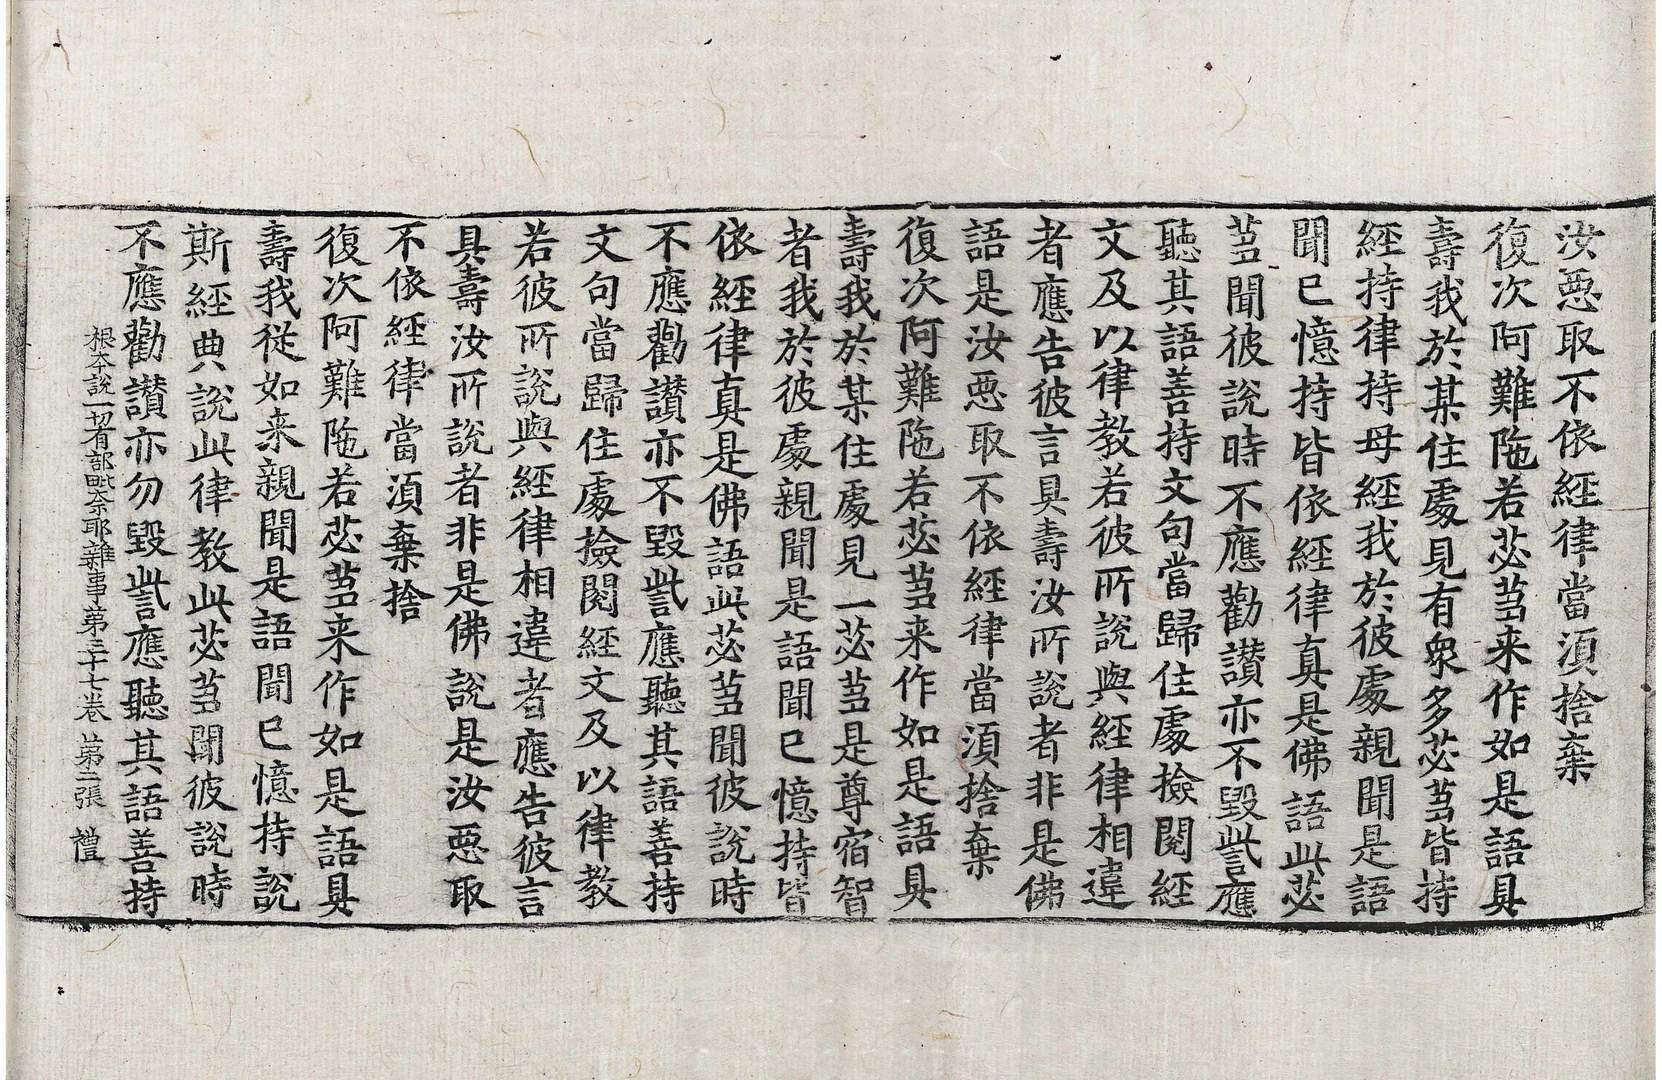 汝惡取不依經律當須捨棄
復次阿難陁若苾芻来作如是語具
壽我於某住處見有衆多苾芻皆持
經持律持母經我於彼處親聞是語
聞已憶持皆依經律真是佛語此苾
芻聞彼說時不應勸讃亦不毀訾應
聽其語善持文句當歸住處撿閱經
文及以律教若彼所說與經律相違
者應告彼言具壽汝所說者非是佛
語是汝惡取不依經律當須捨棄
復次阿難陁若苾芻来作如是語具
壽我於某住處見一苾芻是尊宿智
者我於彼處親聞是語聞已憶持皆
依經律真是佛語此苾芻聞彼說時
不應勸讃亦不毀訾應聽其語善持
文句當歸住處撿閱經文及以律教
若彼所說與經律相違者應告彼言
具壽汝所說者非是佛說是汝惡取
不依經律當須棄捨
復次阿難陁若苾芻来作如是語具
壽我從如来親聞是語聞已憶持說
斯經典說此律教此苾芻聞彼說時
不應勸讃亦勿毀訾應聽其語善持
根本說一切有部毗奈耶雜事第三十七卷 第二張 禮